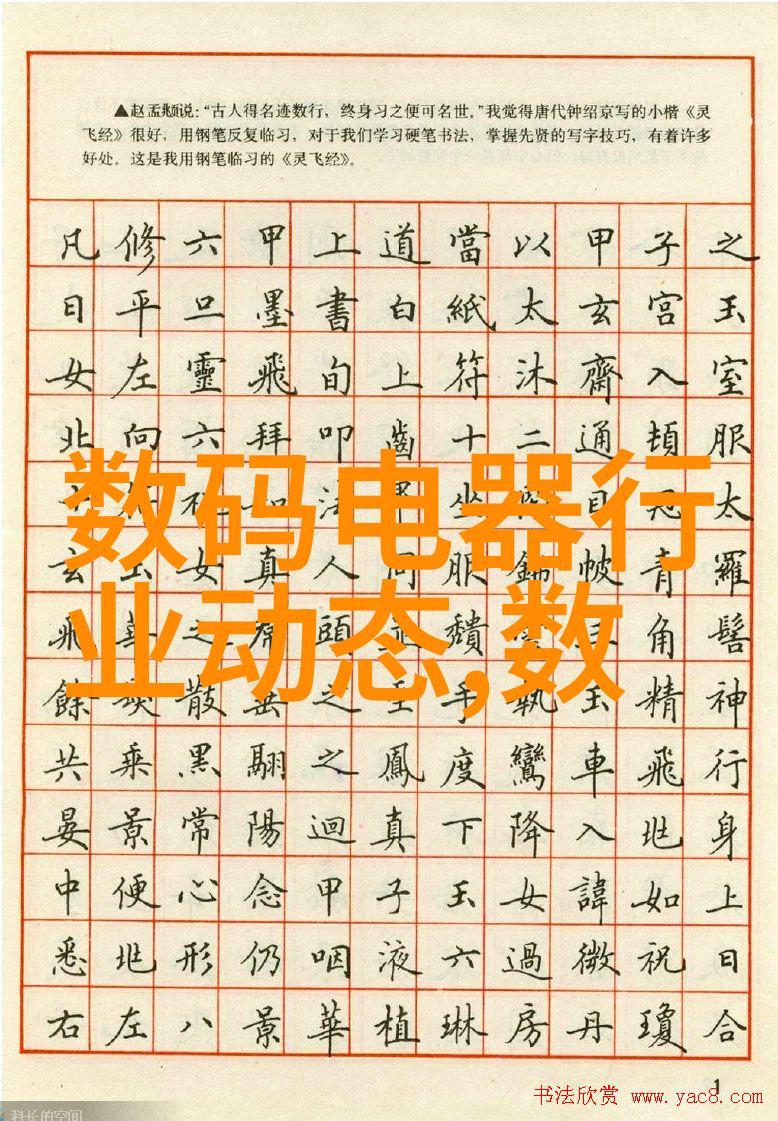 ▲赵孟頫说：“古人得名迹数行，终身习之便可名世。”我觉得唐代钟绍京写的小楷《灵
飞经》很好，用钢笔反复临习，对于我们学习硬笔书法，掌握先贤的写字技巧，有着许多
好处。这是我用钢笔临习的《灵飞经》。
凡修六甲上道當以甲子之
日平旦墨書白紙太玄宮玉
女左靈飛旬上符沐齋入室
北向六拜叩齒十二通頓服
如法坐目太
数码电器行
玄玉女真人同服錦帔青羅
业动态,数
飛之頭角髻
餘散垂之手執玉精神
共乘黑翮之鳳度鸞車飛行
晏景常陽迴真下降入兆身
中便心念甲子玉女諱如上
悉兆形仍咽液六過微祝日
右左八景華植琳房丹瓊合
1
书法欣赏 www.yac8.com
科长的空间